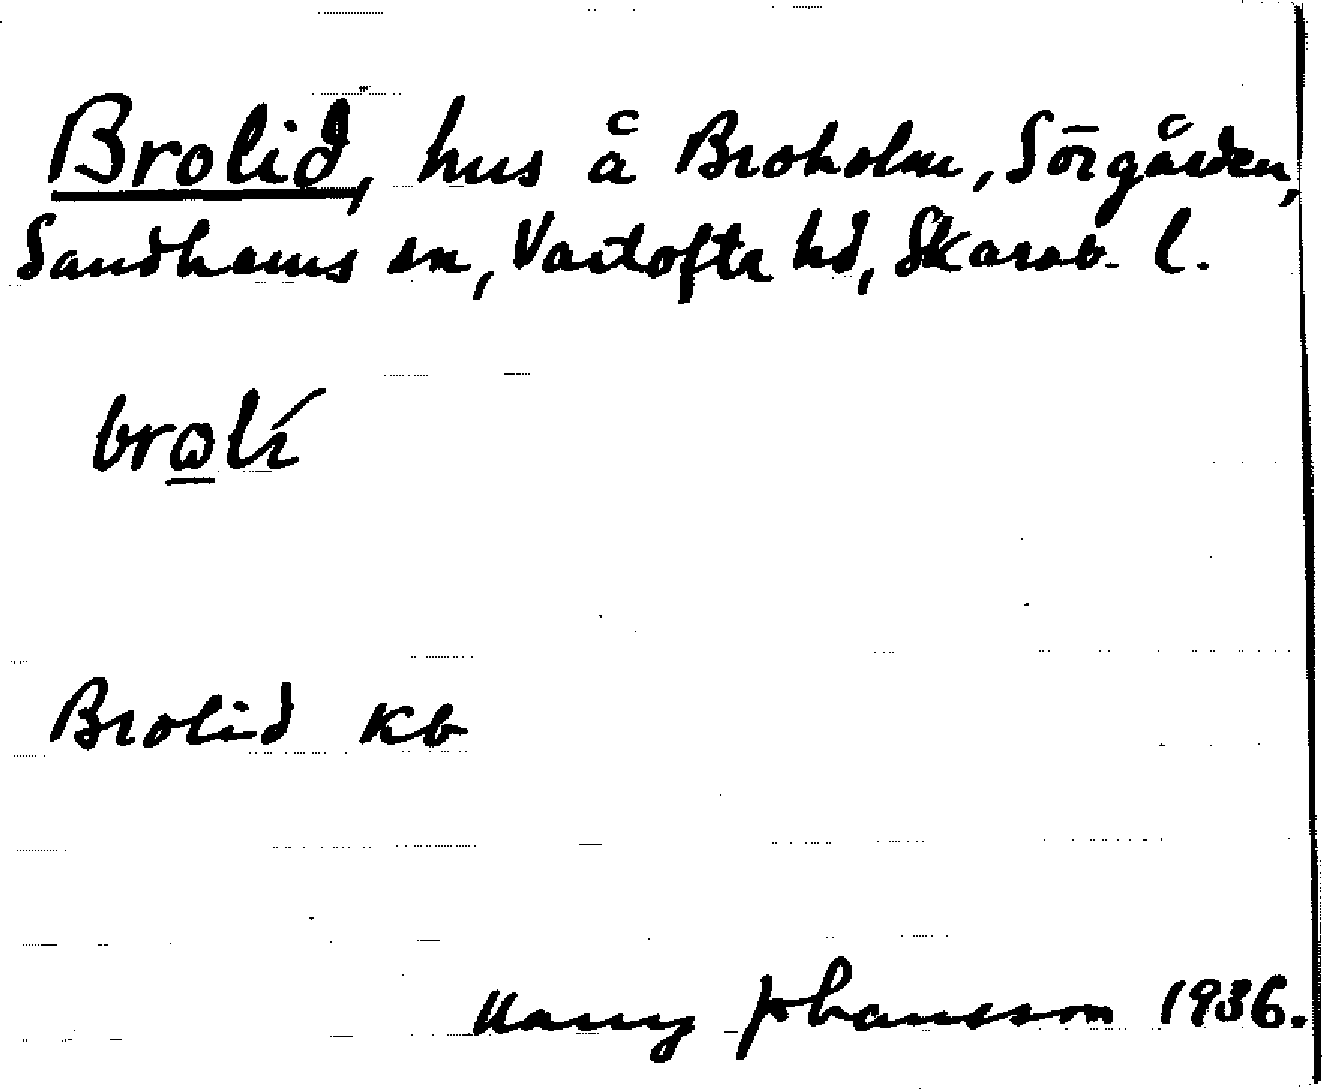 Brolid, hus å Broholm, Sörgården,
Sandhems sn, Vartofta hd, Skarab. l.
brωlí
Brolid kb
Harry Johansson 1936.